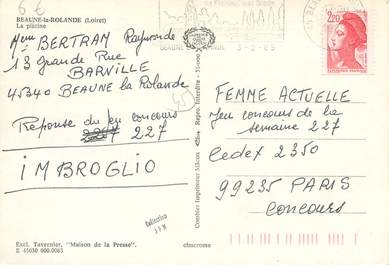 6 €
BEAUNE-la-ROLANDE (Loiret)
La piscine
BEAUNE 3-2-89
2,20
Mme BERTRAM Raymonde
13 Grande Rue
BARVILLE
45340 BEAUNE la Rolande
45
Reponse du jeu concours
227
IMBROGLIO
FEMME ACTUELLE
Jeu concours de la
semaine 227
Cedex 2350
99235 PARIS
Concours
Combier Imprimeur Mâcon
Repro. Interdite - 35.000
Collection
Excl. Tavernier, "Maison de la Presse".
E 45030 000.0065
cimcrome